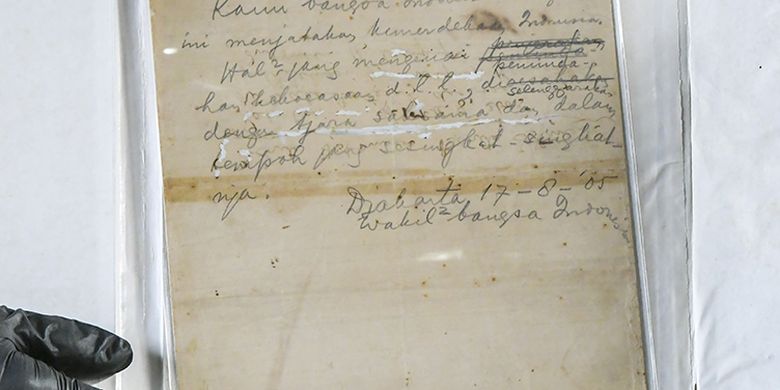 Kami bangsa Indonesia
ini menjatakan kemerdekaan Indonesia.
Hal² jang mengenai
peminda-
han kekoeasaan d.l.l., diselenggarakan
dengan tjara saksama dan dalam
tempoh jang sesingkat-singkat-
nja.
Djakarta 17-8-'05
Wakil² bangsa Indonesia